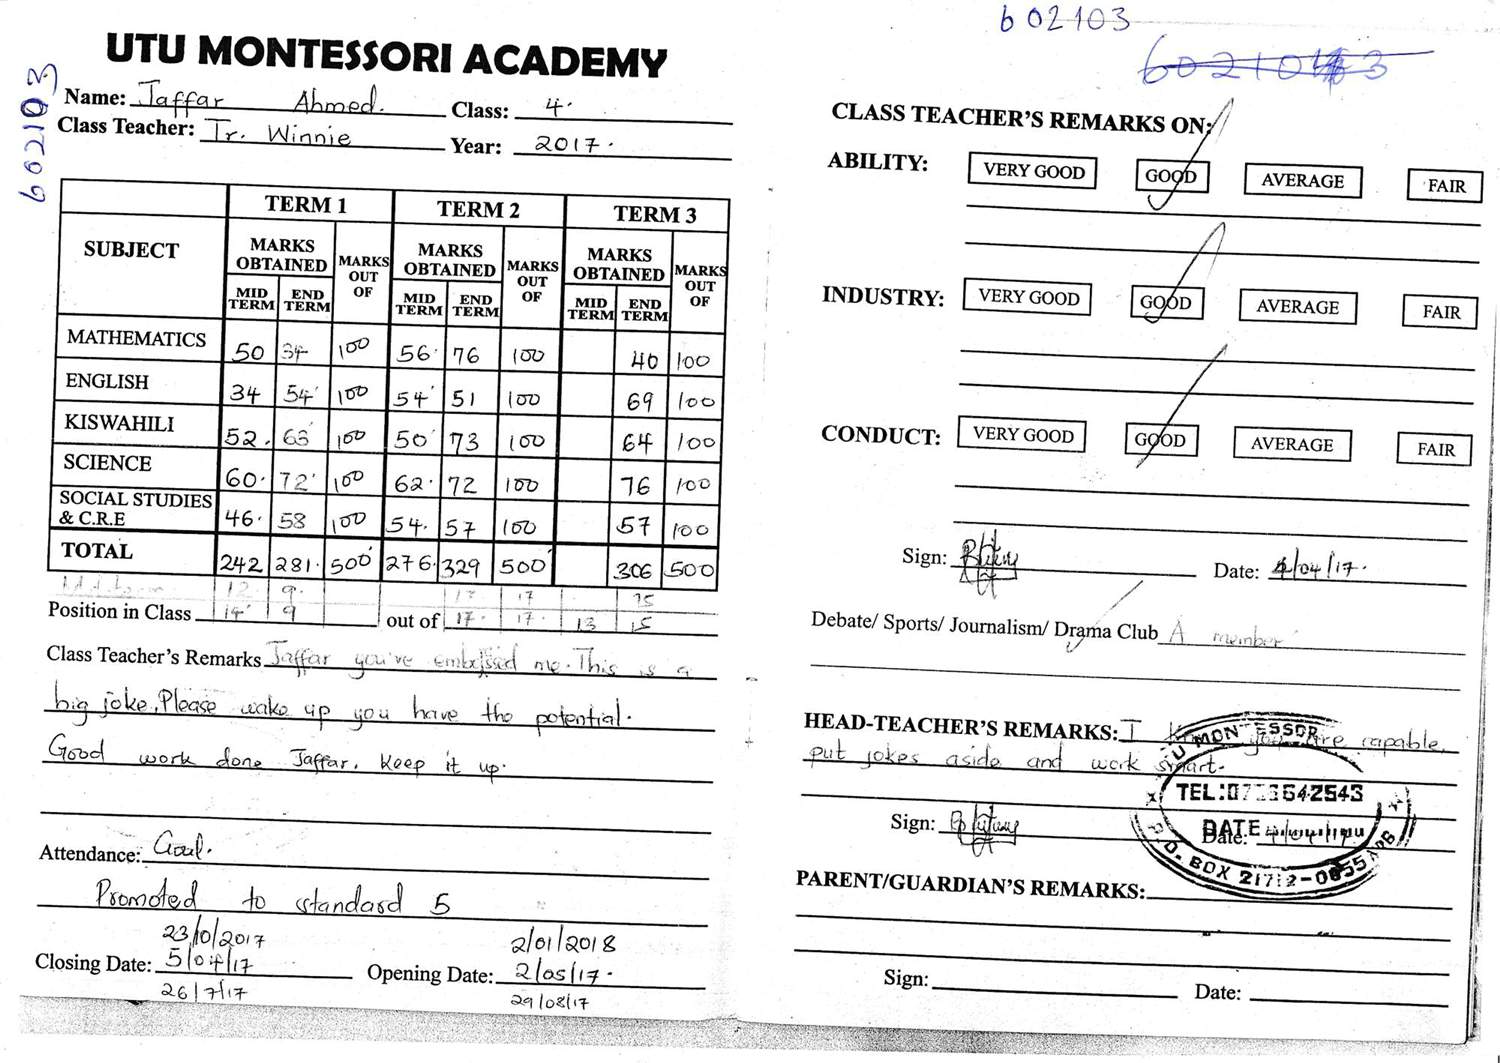 602103
602103
UTU MONTESSORI ACADEMY
Name: Jaffar Ahmed. Class: 4.
Class Teacher: Tr. Winnie Year: 2017.
602103
SUBJECT TERM 1 TERM 2 TERM 3
MARKS OBTAINED MARKS OUT OF MARKS OBTAINED MARKS OUT OF MARKS OBTAINED MARKS OUT OF
MID TERM END TERM MID TERM END TERM MID TERM END TERM
MATHEMATICS 50 34 100 56. 76 100 40 100
ENGLISH 34 54 100 54 51 100 69 100
KISWAHILI 52. 63 100 50 73 100 64 100
SCIENCE 60. 72 100 62. 72 100 76 100
SOCIAL STUDIES & C.R.E 46. 58 100 54. 57 100 57 100
TOTAL 242 281. 500 276. 329 500 306 500
12 9. 17 17 15
Position in Class 14 9 out of 17. 17. 13 15
Class Teacher's Remarks Jaffar you've me. This is a
big joke. Please wake up you have the potential.
Good work done Jaffar. Keep it up.
Attendance: Goal.
Promoted to standard 5
23/10/2017 2/01/2018
Closing Date: 5/04/17 Opening Date: 2/05/17.
26/7/17 29/08/17
CLASS TEACHER'S REMARKS ON:
ABILITY: VERY GOOD GOOD AVERAGE FAIR
INDUSTRY: VERY GOOD GOOD AVERAGE FAIR
CONDUCT: VERY GOOD GOOD AVERAGE FAIR
Sign: Date: 4/04/17.
Debate/ Sports/ Journalism/ Drama Club A member
HEAD-TEACHER'S REMARKS: I Know you are capable,
put jokes aside and work smart.
MONTESSOR
TEL:
Sign: DATE
Date:
P.O. BOX
PARENT/GUARDIAN'S REMARKS:
Sign: Date: